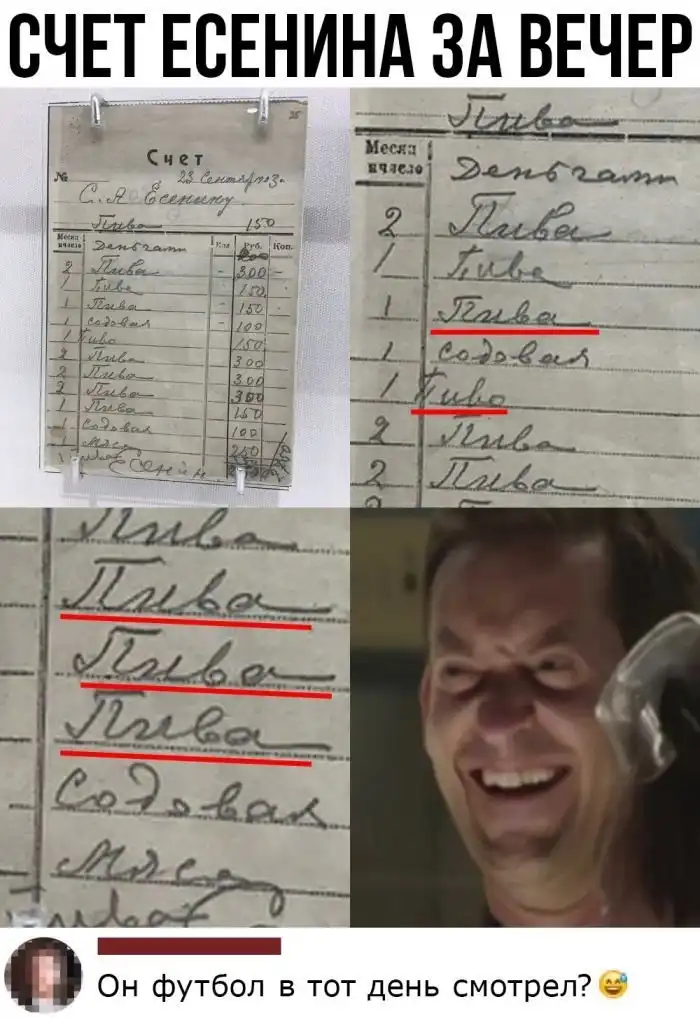 СЧЕТ ЕСЕНИНА ЗА ВЕЧЕР
Счет
№ 23 Сентяр
С. А Есенину
Пива 150
Месяц и число Деньгами Руб. Коп.
2 Пива - 300 -
1 Пива - 150
1 Пива - 150
1 содовая - 100
1 Пиво 150
2 Пива 300
2 Пива 300
2 Пива 300
1 Пива 150
1 Содовая 100
1 Мясо 250
Есенин
Пива
Месяц и число Деньгами
2 Пива
1 Пива
1 Пива
1 содовая
1 Пиво
2 Пива
2 Пива
Пива
Пива
Пива
Пива
Содовая
Мясо
Он футбол в тот день смотрел?😅